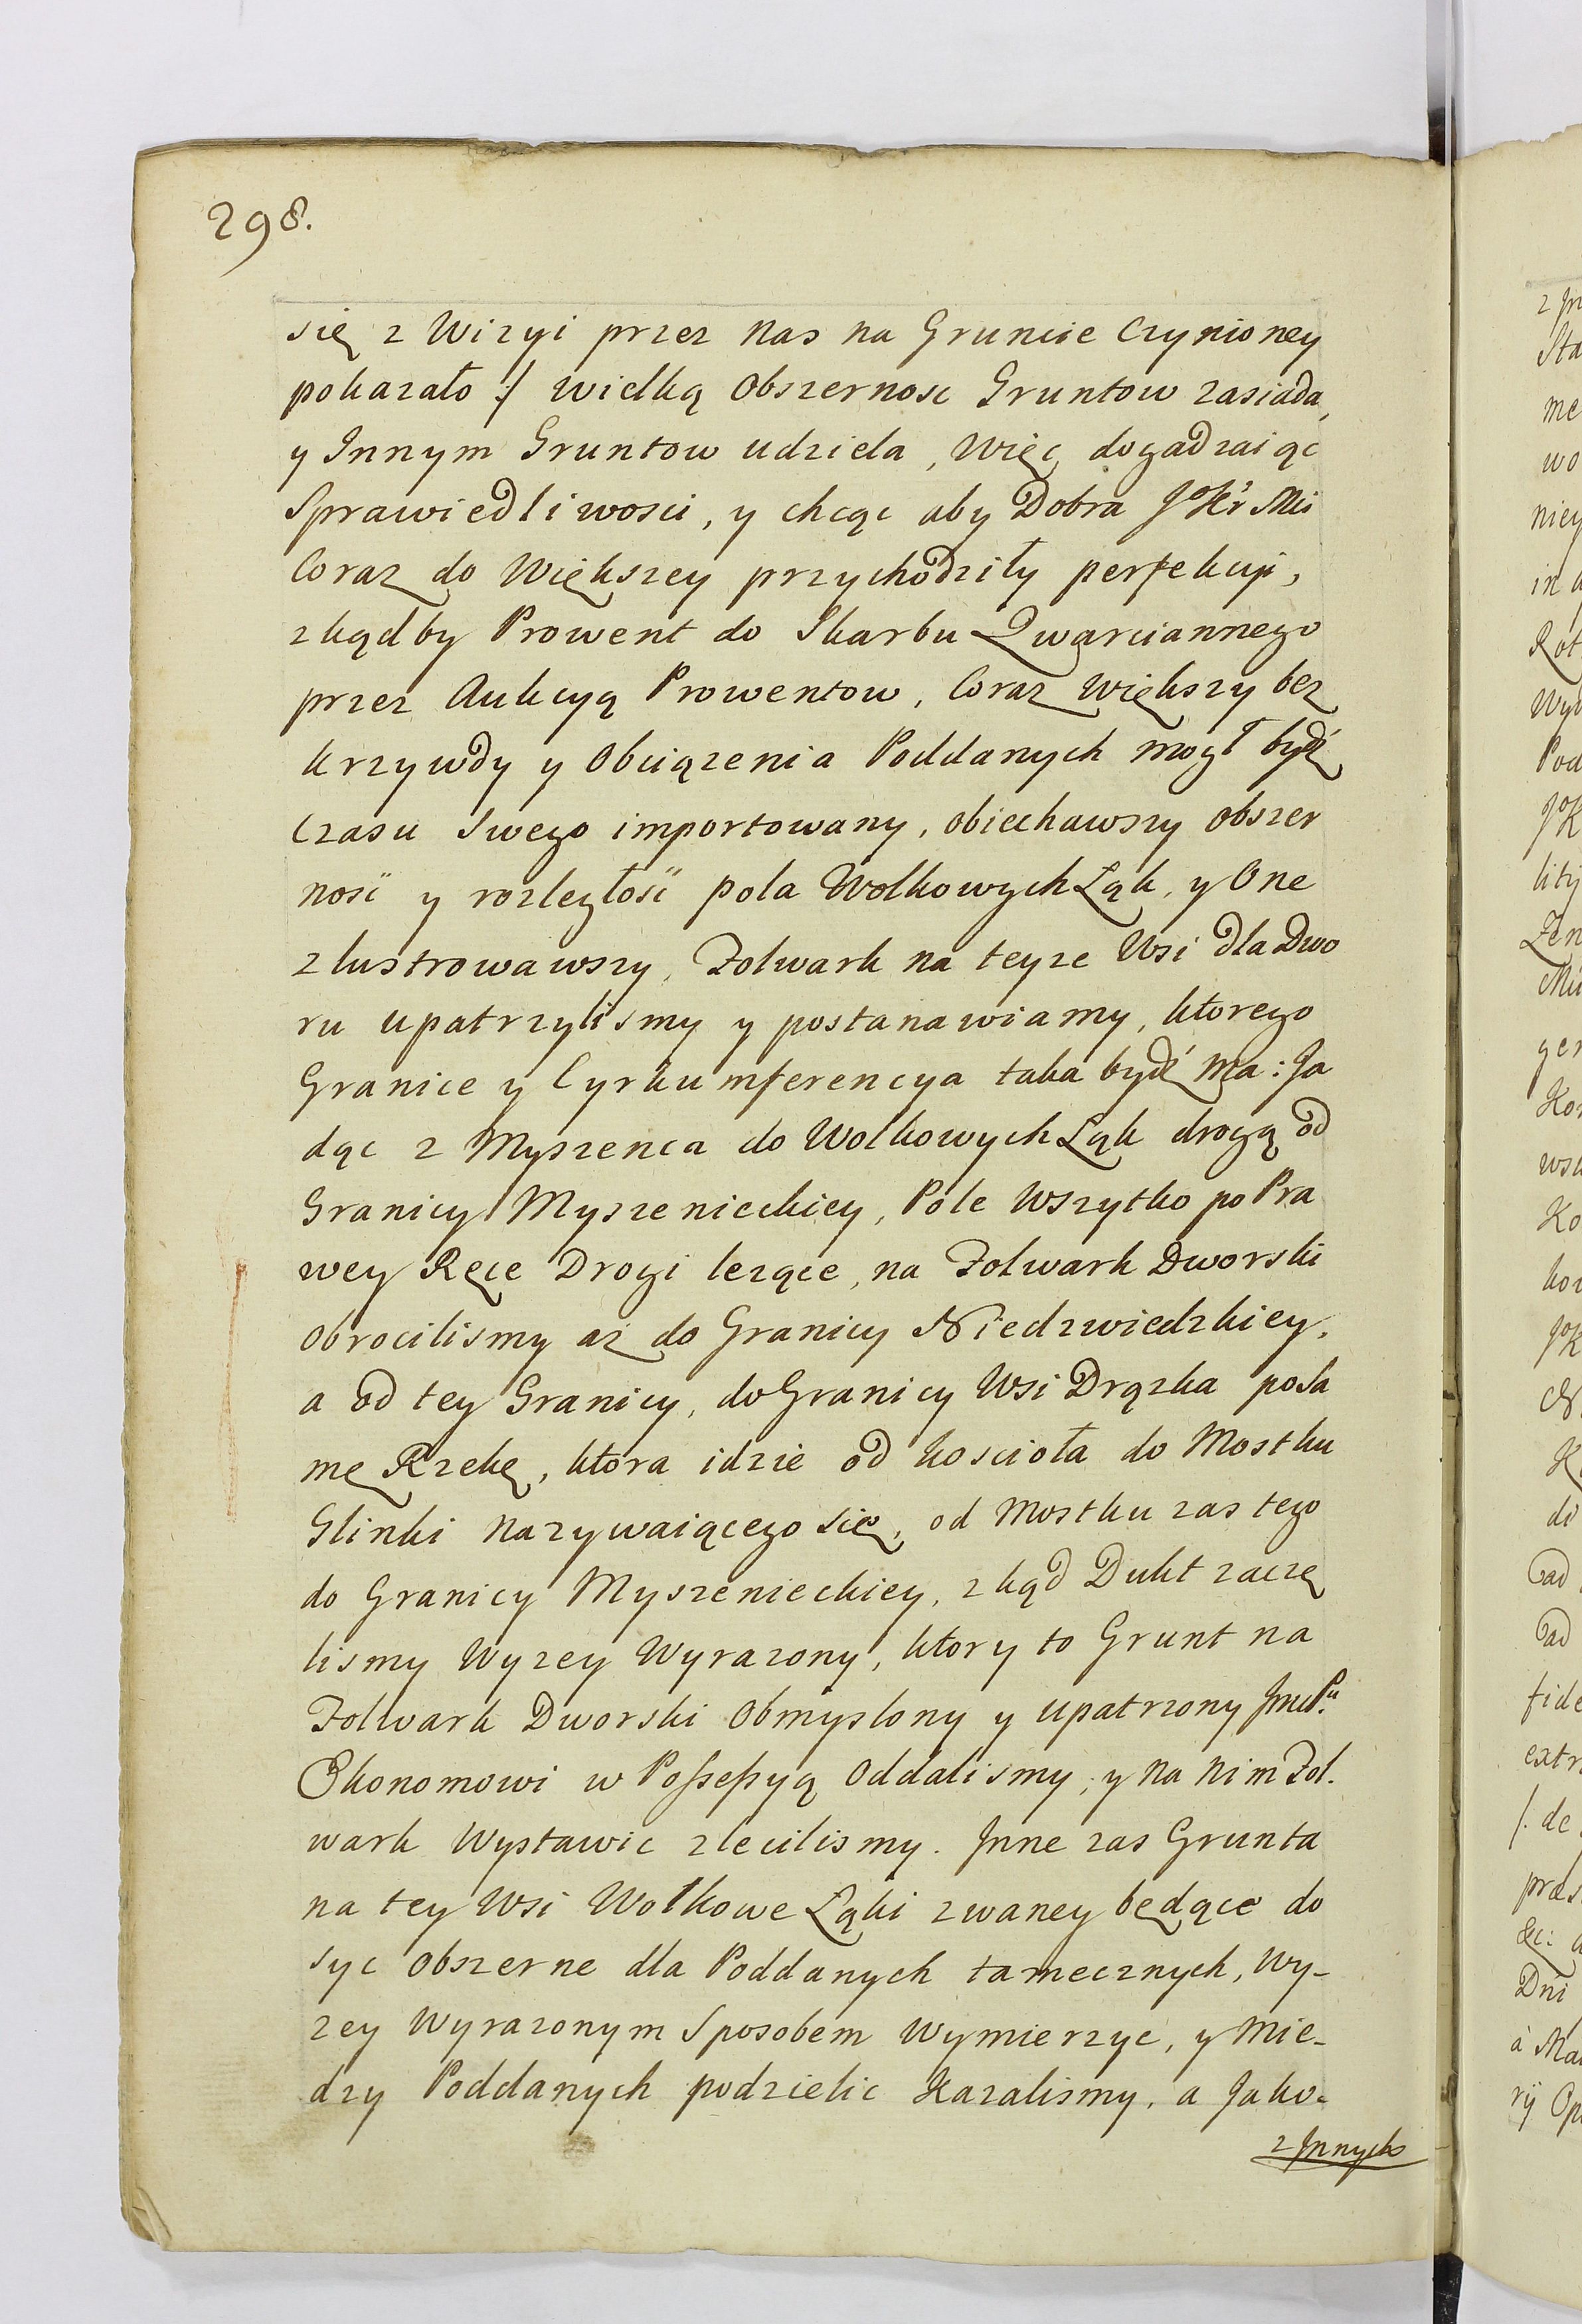 298.
się z Wizyi przez nas na Gruncie Czynioney
pokazało :/ wielką Obszernosc Gruntow zasiada,
y Innym Gruntow udziela, Więc dogadzaiąc
Sprawiedliwosci, y chcąc aby Dobra JoKr Mci
Coraz do Większey przychodziły perfekcyi,
zkądby Prowent do Skarbu Qwarciannego
przez Aukcyą Prowentow, Coraz większy bez
krzywdy y Obciązenia Poddanych mogł bydź
Czasu Swego importowany, obiechawszy obszer
nosć y rozległosć pola Wolkowych Łąk, y One
zlustrowawszy, Folwark na teyze Wsi dla Dwo
ru upatrzylismy y postanawiamy, ktorego
Granice y Cyrkumferencya taka bydź ma: Ja
dąc z Myszenca do Wolkowych Łąk drogą od
Granicy Myszenieckiey, Pole Wszytko po Pra
wey Ręce Drogi lezące, na Folwark Dworski
obrocilismy az do Granicy Niedzwiedzkiey,
a od tey Granicy, do Granicy Wsi Drązka posa
mę Rzekę, ktora idzie od koscioła do Mostku
Glinki nazywaiącego się, od Mostku zas tego
do Granicy Myszenieckiey, zkąd Dukt zaczę
lismy Wyzey Wyrazony, ktory to Grunt na
Folwark Dworski Obmyslony y upatrzony JmcPu
Ekonomowi w Possessyą Oddalismy, y na nim Fol.
wark Wystawic zlecilismy. Jnne zas Grunta
na tey Wsi Wołkowe Łąki zwaney będące do
syc Obszerne dla Poddanych tamecznych, Wy-
zey Wyrazonym Sposobem Wymierzyc, y Mie-
dzy Poddanych podzielic Kazalismy, a Jako-
z Jnnych